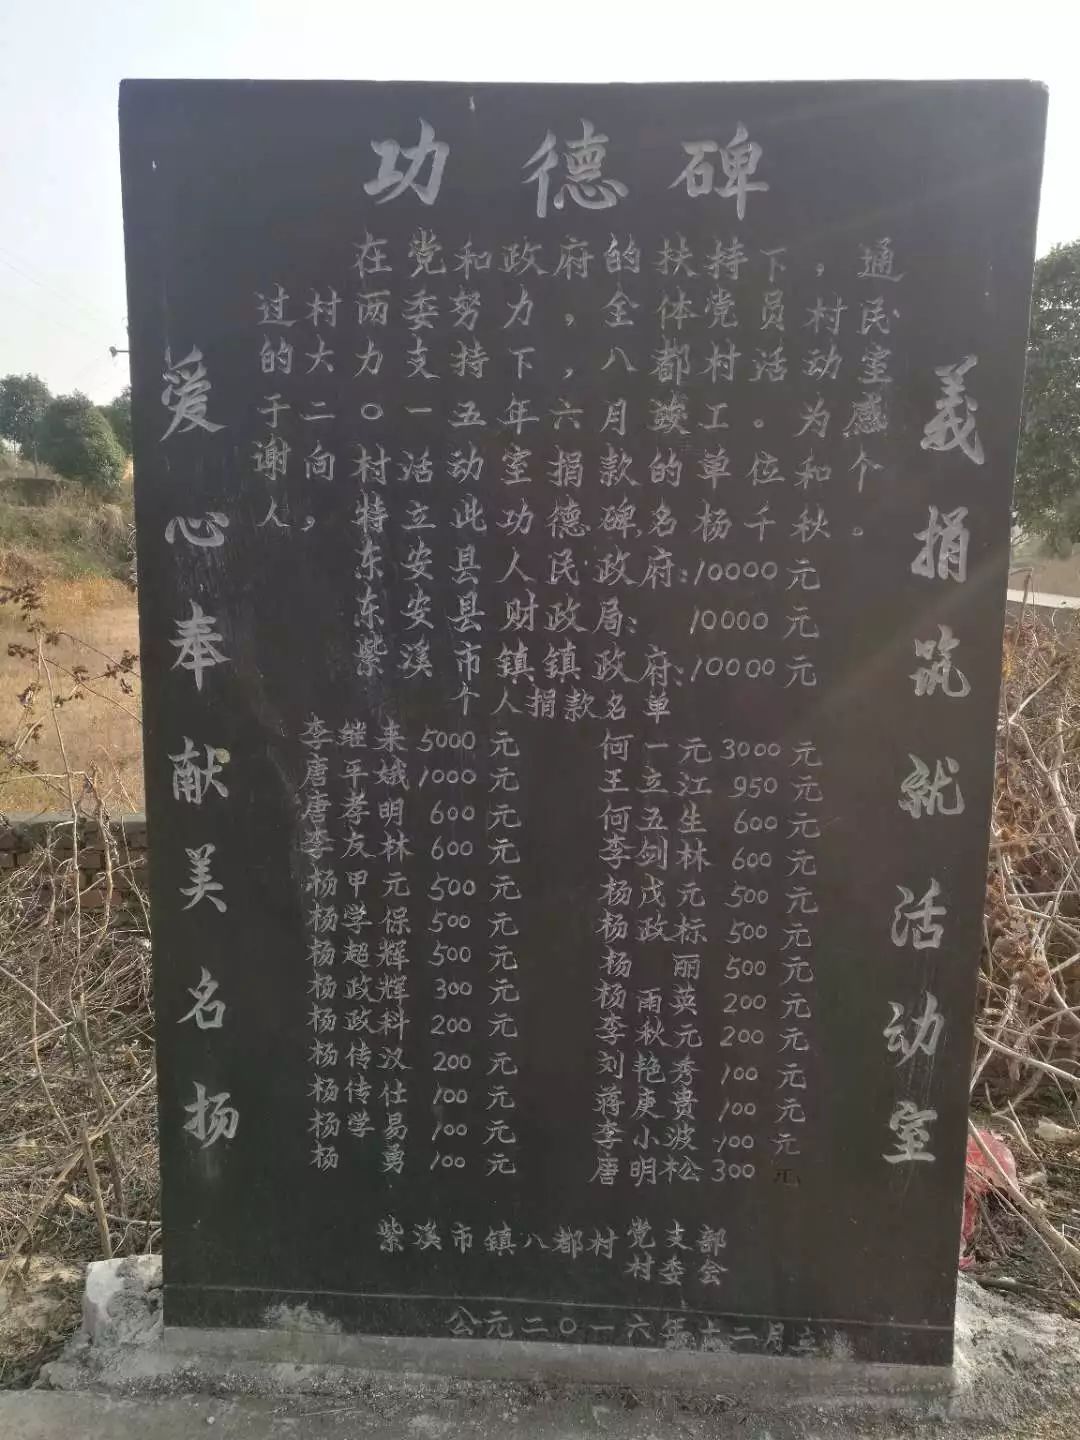 功德碑
義捐筑就活动室
在党和政府的扶持下,通
过村两委努力,全体党员村民
的大力支持下,八都村活动室
于二〇一五年六月竣工。为感
谢向村活动室捐款的单位和个
人,特立此功德碑名扬千秋。
东安县人民政府:10000元
东安县财政局: 10000元
紫溪市镇镇政府:10000元
个人捐款名单
李继来 5000元 何一元 3000元
唐平娥 1000元 王立江 950元
唐孝明 600元 何五生 600元
李友林 600元 李剑林 600元
杨甲元 500元 杨戊元 500元
杨学保 500元 杨政标 500元
杨超辉 500元 杨丽 500元
杨政辉 300元 杨雨英 200元
杨政科 200元 李秋元 200元
杨传汉 200元 刘艳秀 100元
杨传仕 100元 蒋庚贵 100元
杨学易 100元 李小波 100元
杨勇 100元 唐明松 300元
爱心奉献美名扬
紫溪市镇八都村党支部
村委会
公元二〇一六年十二月立